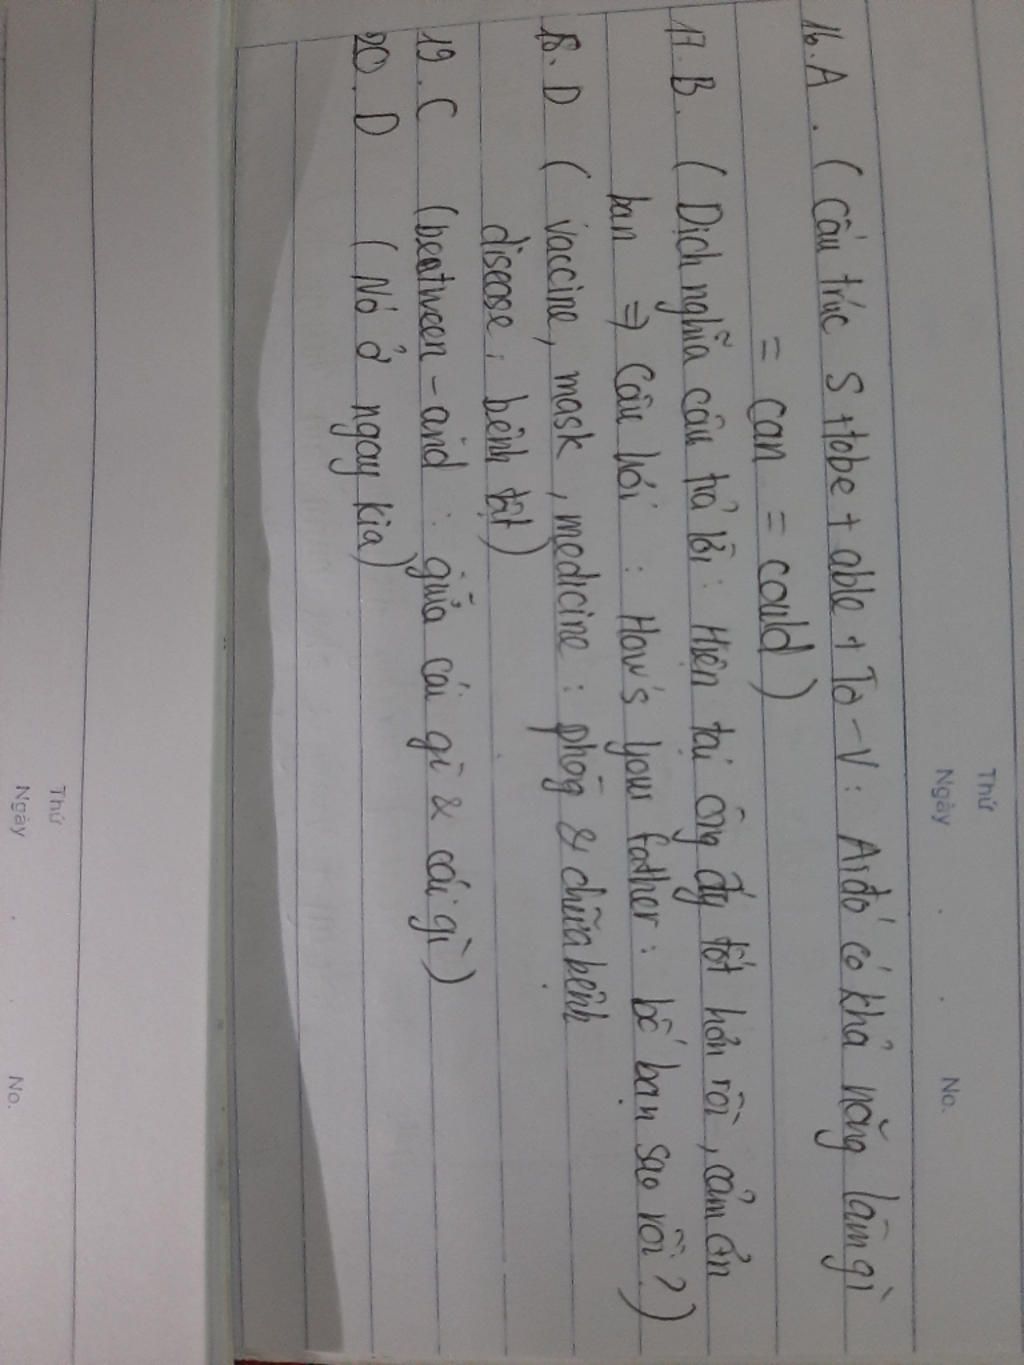 Thứ
Ngày . . No.
16. A . ( Cấu trúc S + tobe + able + To - V : Ai đó có khả năng làm gì
= can = could )
17. B. ( Dịch nghĩa câu trả lời : Hiện tại ông ấy tốt hơn rồi , cảm ơn
bạn ⇒ Câu hỏi : How's your father : bố bạn sao rồi ? )
18. D ( vaccine, mask , medicine : phòg & chữa bệnh
disease : bệnh tật )
19. C (beatween - and : giữa cái gì & cái gì )
20. D ( Nó ở ngay kia )
Thứ
Ngày . . No.